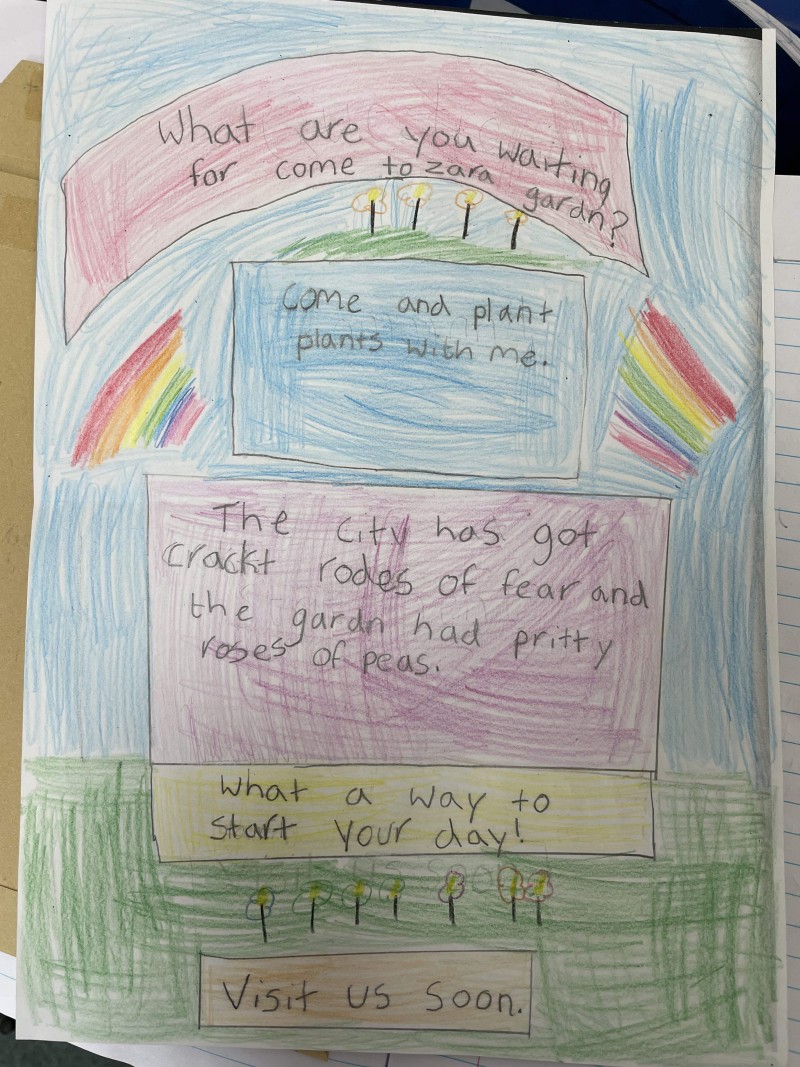 What are you waiting
for come to zara gardn?
Come and plant
plants with me.
The city has got
crackt rodes of fear and
the gardn had pritty
roses of peas.
What a way to
start your day!
Visit us soon.